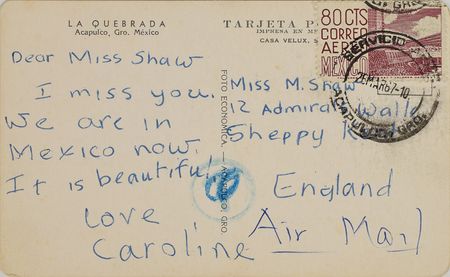 LA QUEBRADA
Acapulco, Gro. México
TARJETA P
IMPRESA EN ME
CASA VELUX, S
80 CTS
CORREO
AEREO
MEXICO
SERVICIO
ACAPULCO, GRO.
FOTO ECONOMICA, ACAPULCO, GRO.
Dear Miss Shaw
I miss you.
We are in
Mexico now.
It is beautiful!
Love
Caroline
Miss M. Shaw
12 Admirals Walk
Sheppy
England
Air Mail